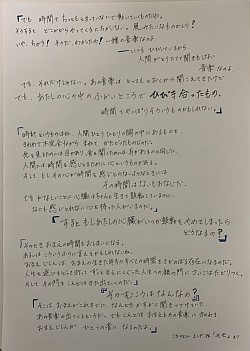 「でも 時間て ちっともとまっていないで動いているものだわ。
そうすると、どこからかやってくるにちがいない。風みたいなものかしら？
いや、ちがう！ そうだ、わかったわ！ 一種の音楽なのよ
——いつも ひびいているから
人間がとりたてて聞きもしない
音楽なのよ
でも、それだけじゃない。あの音楽は とっても遠くから聞こえてきたけど、
でも、あたしの心の中の ふかいところで ひびき合ったもの。
時間てやっぱりそういうものかもしれないわ。」
「時計というのはね、人間ひとりひとりの胸の中にあるものを、
きわめて不完全ながら まねて かたどったものなのだ。
光を見るためには目があり、音を聞くためには耳があるのと同じに、
人間には時間を感じとるために心というものがある。
そして、もしその心が時間を感じとらないようなときには
その時間はないもおなじだ。
でもかなしいことに 心臓はちゃんと生きて鼓動しているのに、
なにも感じとれない心をもった人がいるのだ。」
「するともしあたしの心臓がいつか鼓動をやめてしまったら
どうなるの？」
「そのときは、おまえの時間もおしまいになる。
あるいは こういうふうに言えるかもしれないね。
おまえじしんは、おまえの生きた年月のすべての時間をさかのぼる存在になるのだ。
人生を逆にもどって行って、ずっとまえにくぐった人生への銀の門に さいごにはたどりつく。
そして その門をこんどはまた出ていくのだ。」
「そのむこうはなんなの？」
「そこは おまえがこれまでに、なんどもかすかに聞きつけていた
あの音楽の出てくるところだ。でもこんどは、おまえもその音楽に加わる
おまえじしんが ひとつの音になるのだよ。」